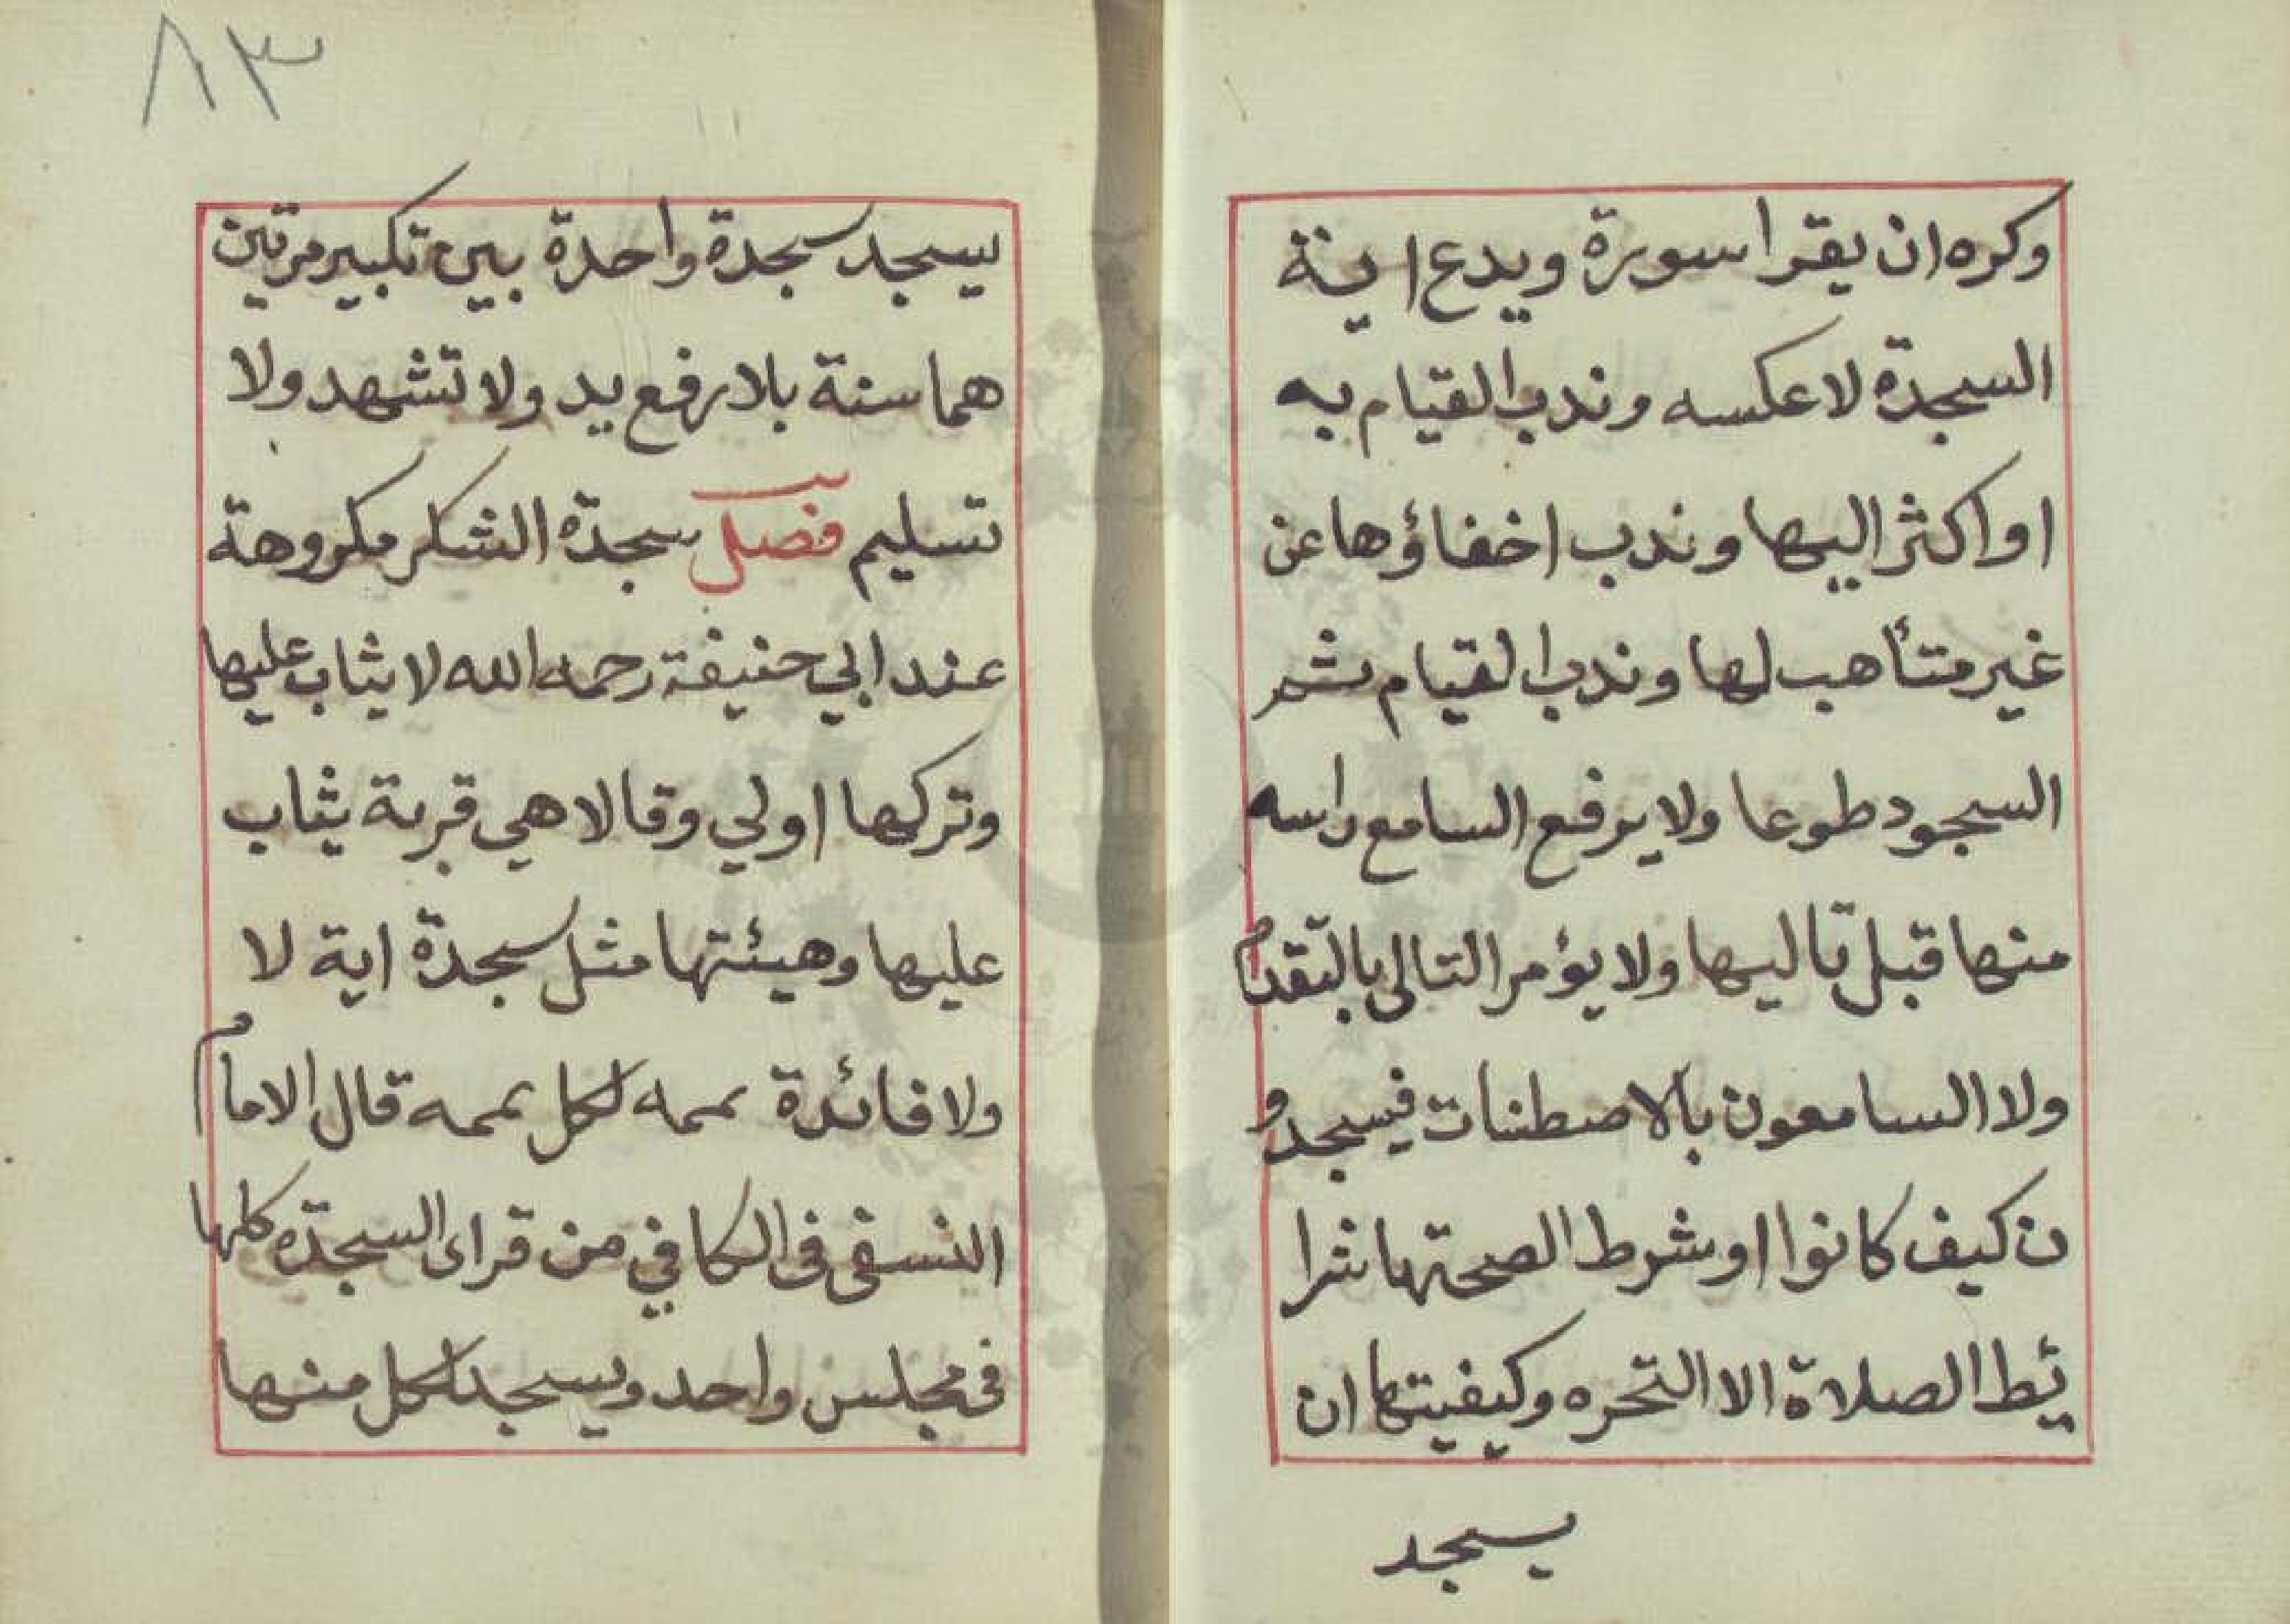 وكره ان يقرا سورة ويدع اية
السجدة لا عكسه وندب القيام به
او اكثر اليها وندب اخفاؤها عن
غير متأهب لها وندب القيام ثم
السجود طوعا ولا يرفع السامع راسه
منها قبل تاليها ولا يؤمر التالى بالتقدم
ولا السامعون بالاصطناف فيسجدو
ن كيف كانوا او شرط الصحتها شرا
ئط الصلاة الا التحره وكيفيتها ان
يسجد
٨٣
يسجد سجدة واحدة بين تكبير مرتين
هما سنة بلا رفع يد ولا تشهد ولا
تسليم فصل سجدة الشكر مكروهة
عند ابي حنيفة رحمه الله لا يثاب عليها
وتركها اولي وقالا هي قربة يثاب
عليها وهيئتها مثل سجدة اية لا
ولا فائدة مهمه لكل مهمه قال الامام
النسفى فى الكافي من قراى السجدة كلها
فى مجلس واحد ويسجد لكل منها